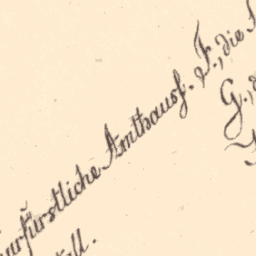 urfürstliche Amthauß. F., die
G.,
all.